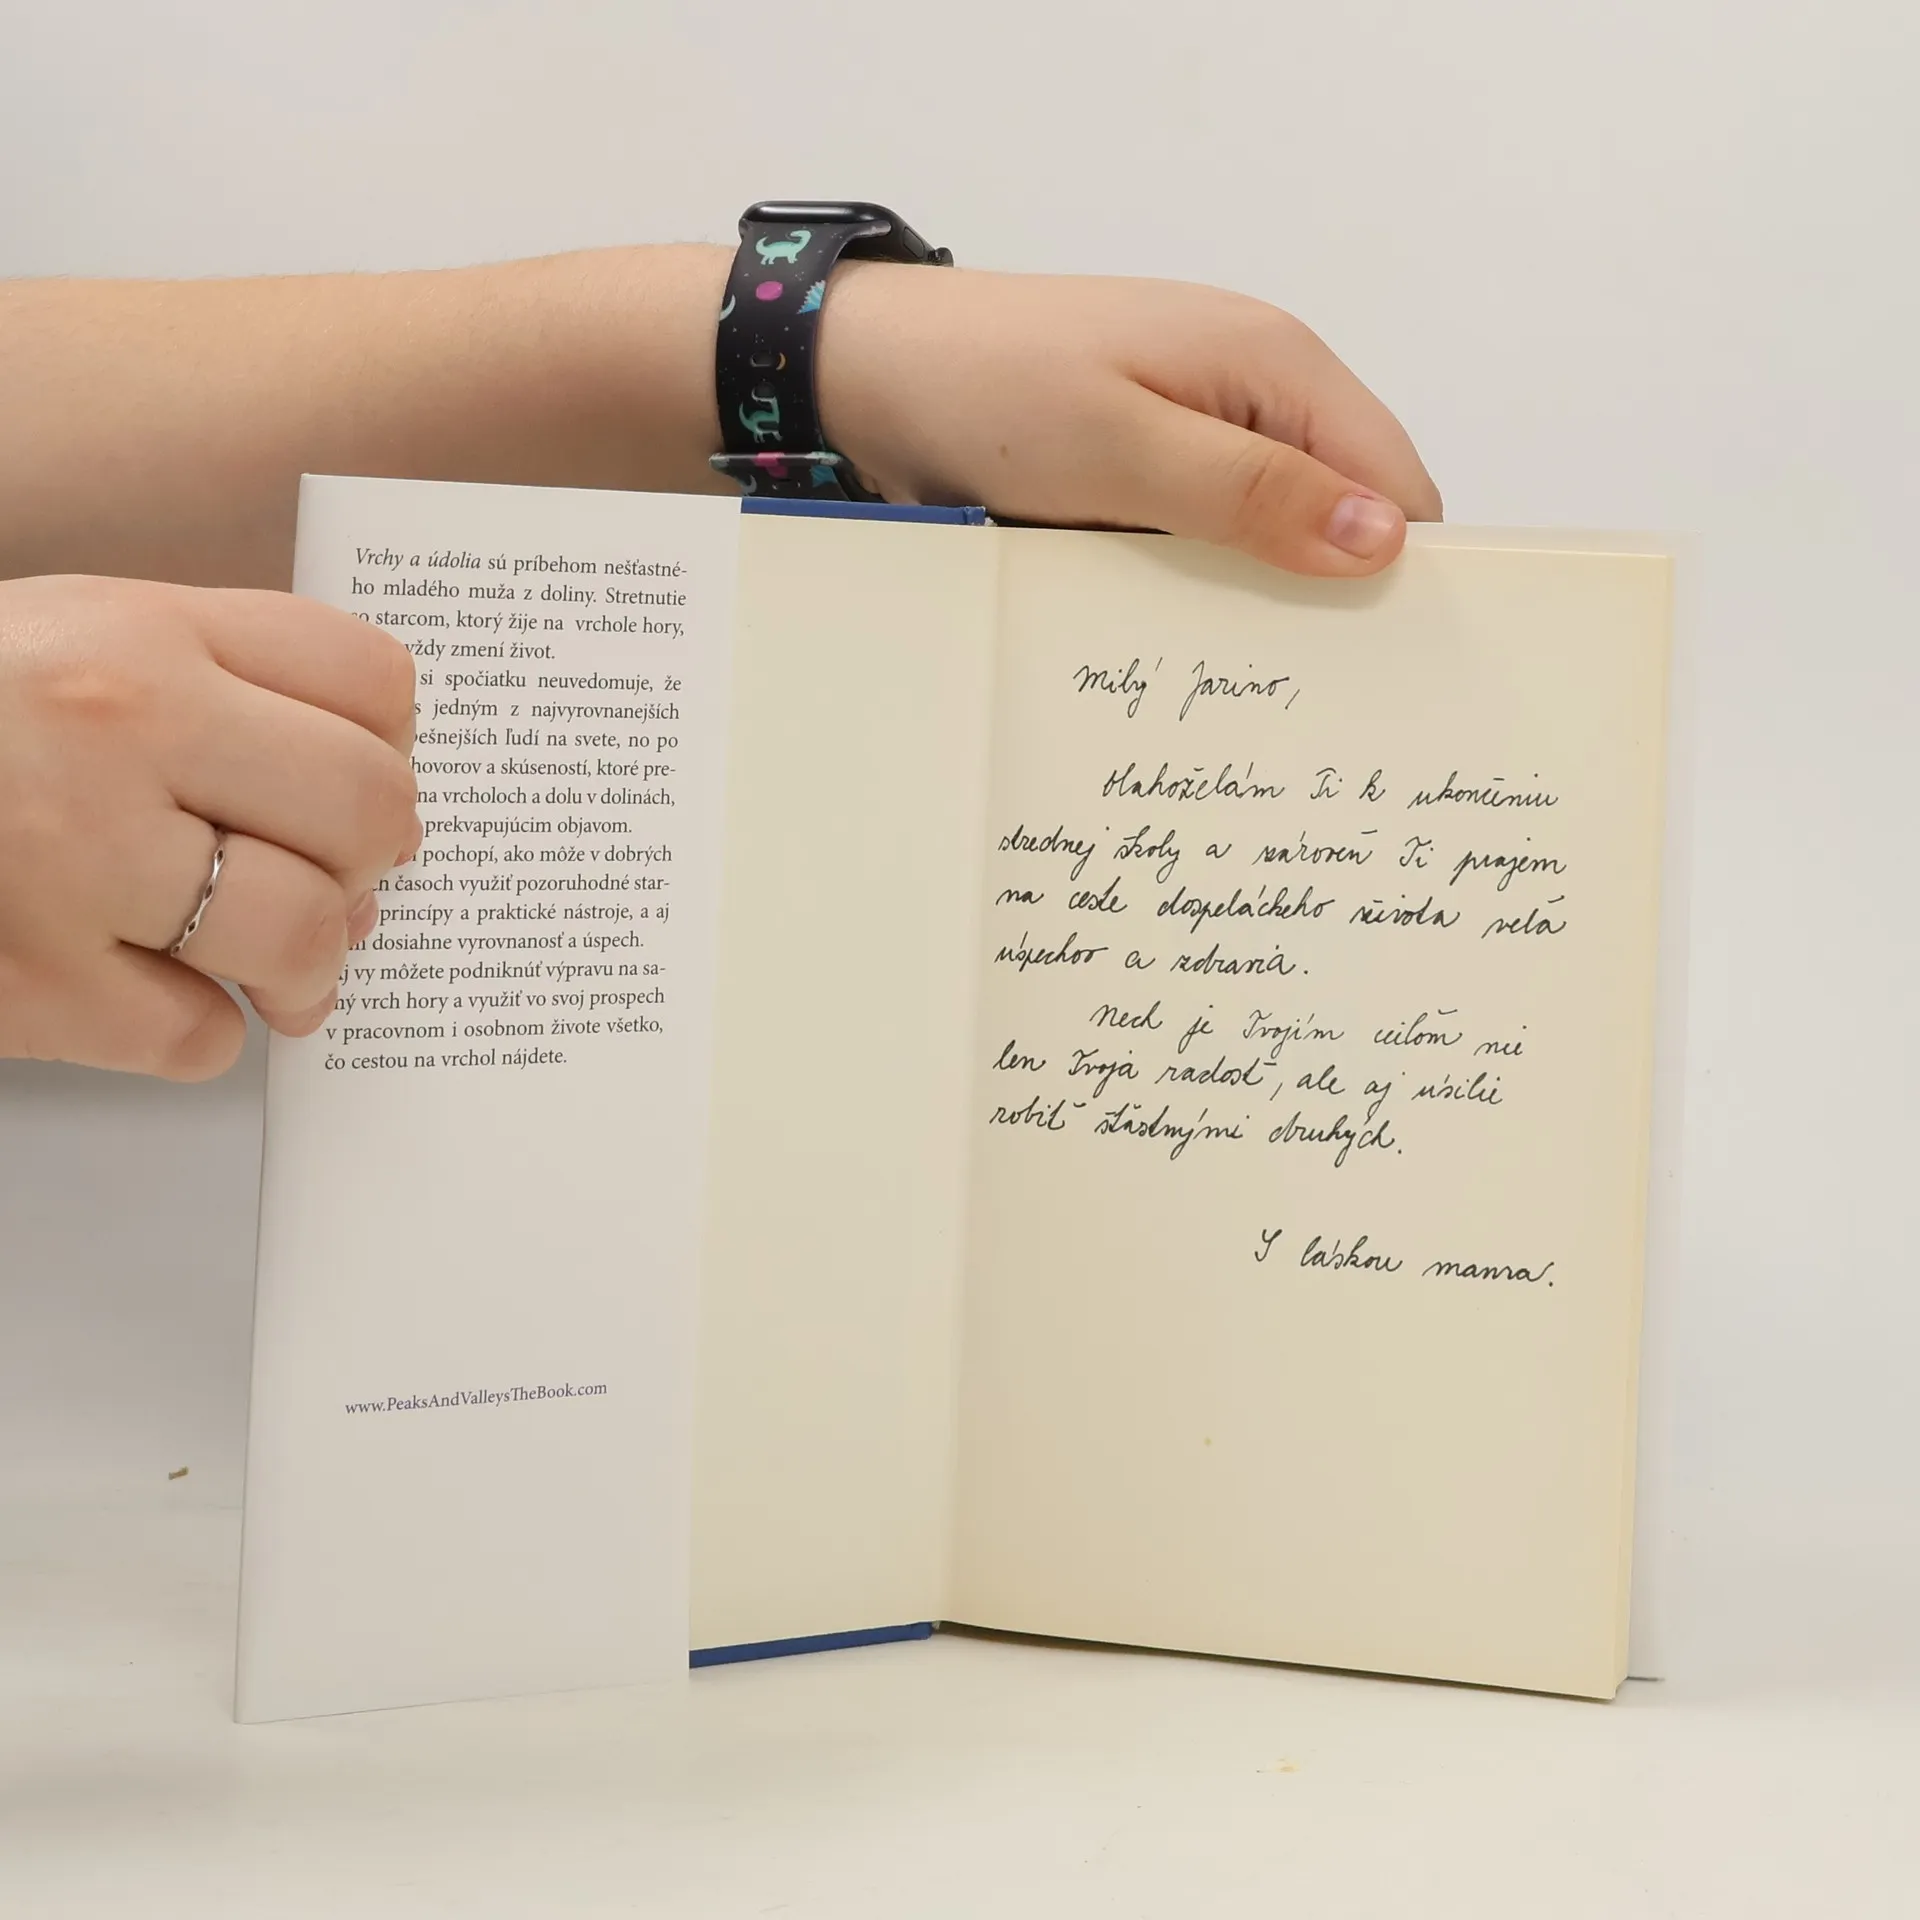 Vrchy a údolia sú príbehom nešťastné-
ho mladého muža z doliny. Stretnutie
so starcom, ktorý žije na vrchole hory,
vždy zmení život.
si spočiatku neuvedomuje, že
s jedným z najvyrovnanejších
ľudí na svete, no po
ktoré pre-
na vrcholoch a dolu v dolinách,
prekvapujúcim objavom.
pochopí, ako môže v dobrých
časoch využiť pozoruhodné star-
princípy a praktické nástroje, a aj
dosiahne vyrovnanosť a úspech.
vy môžete podniknúť výpravu na sa-
vrch hory a využiť vo svoj prospech
v pracovnom i osobnom živote všetko,
čo cestou na vrchol nájdete.
www.PeaksAndValleysTheBook.com
Milý Jarino,
blahoželám Ti k ukončeniu
strednej školy a zároveň Ti prajem
na ceste dospeláckeho života veľa
úspechov a zdravia.
Nech je Tvojím cieľom nie
len Tvoja radosť, ale aj úsilie
robiť šťastnými druhých.
S láskou mama.